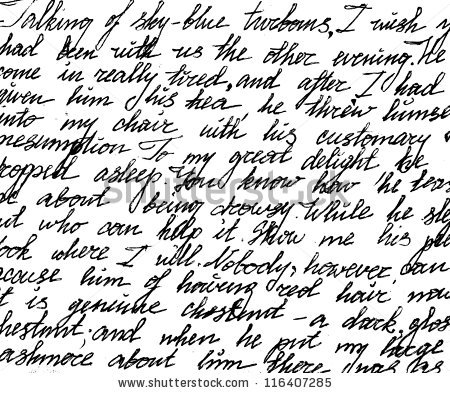 Talking of sky-blue turbans, I wish
had been with us the other evening. He
come in really tired, and after I had
given him his tea he threw himse
into my chair with his customary
resumption To my great delight he
ropped asleep. You know how he teas
about being drowsy. While he sle
ut who can help it. Show me his
ook where I will. Nobody, however, can
ecause him of having red hair now
t is genuine chestnut - a dark, glos
hestnut; and when he put my large
ashmere about him there was as
shutterstock
www.shutterstock.com · 116407285